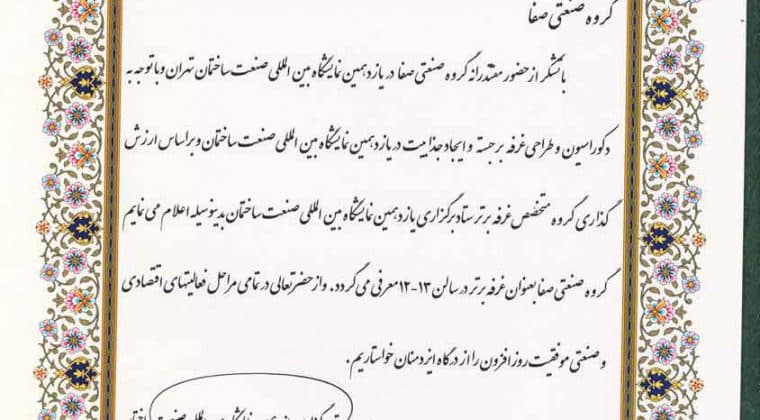 گروه صنعتی صفا
با تشکر از حضور مقتدرانه گروه صنعتی صفا در یازدهمین نمایشگاه بین المللی صنعت ساختمان تهران و با توجه به
دکوراسیون و طراحی غرفه برجسته و ایجاد جذابیت در یازدهمین نمایشگاه بین المللی صنعت ساختمان و براساس ارزش
گذاری گروه متخصص غرفه برتر ستاد برگزاری یازدهمین نمایشگاه بین المللی صنعت ساختمان بدینوسیله اعلام می نمایم
گروه صنعتی صفا بعنوان غرفه برتر در سالن ۱۳-۱۲ معرفی می گردد. و از حضرتعالی در تمامی مراحل فعالیتهای اقتصادی
و صنعتی موفقیت روزافزون را از درگاه ایزد منان خواستاریم.
نمایشگاه بین المللی صنعت